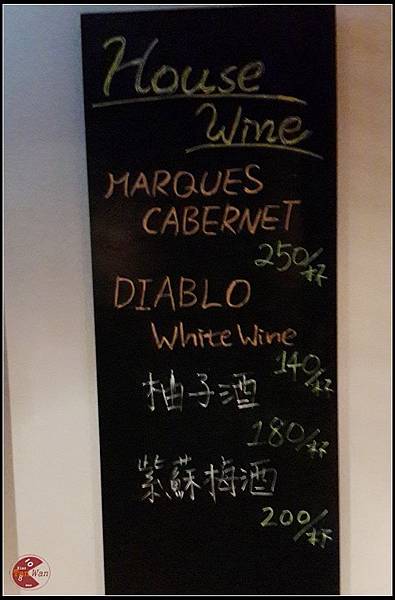 House
Wine
MARQUES
CABERNET
250/杯
DIABLO
White Wine
140/杯
柚子酒
180/杯
紫蘇梅酒
200/杯
Wan